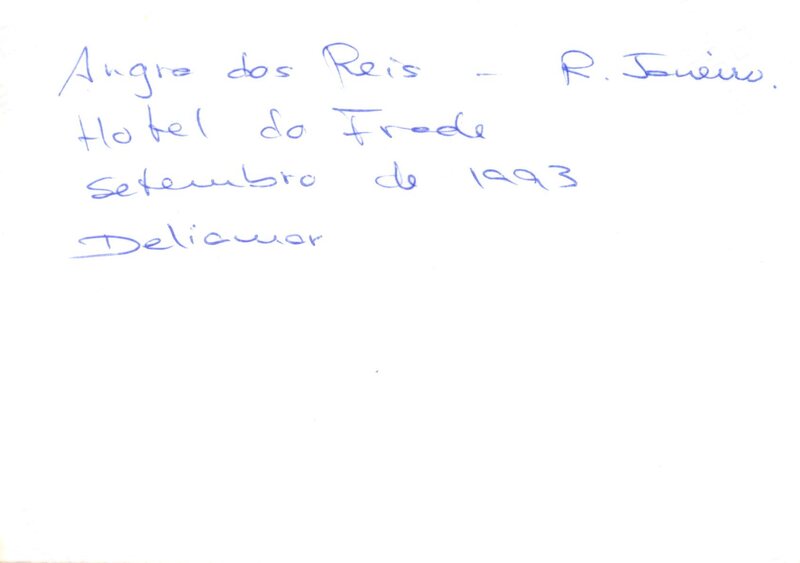 Angra dos Reis - R. Janeiro.
Hotel do Frade
setembro de 1993
Deliamar